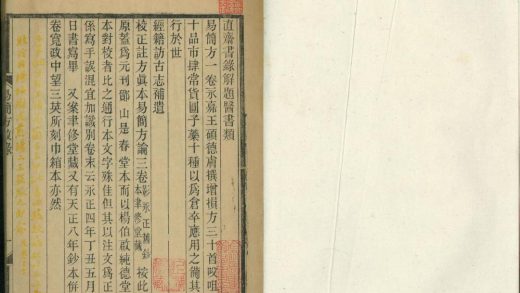 直齋書錄解題醫書類
易簡方一卷永嘉王碩德膚撰增損方三十首㕮咀
十品市肆常貨圓子藥十種以爲倉卒應用之備其
行於世
經籍訪古志補遺
校正註方眞本易簡方論三卷影永正舊鈔本聿修堂藏 按此
原蓋爲元刊鄮山是春堂本而以楊伯啟純德堂
本對校者比之通行本文字殊佳但其以注文爲正
係寫手誤混宜加識別卷末云永正四年丁丑五月
日書寫畢 又案聿修堂藏又有天正八年鈔本併
卷寬政中望三英所刻巾箱本亦然